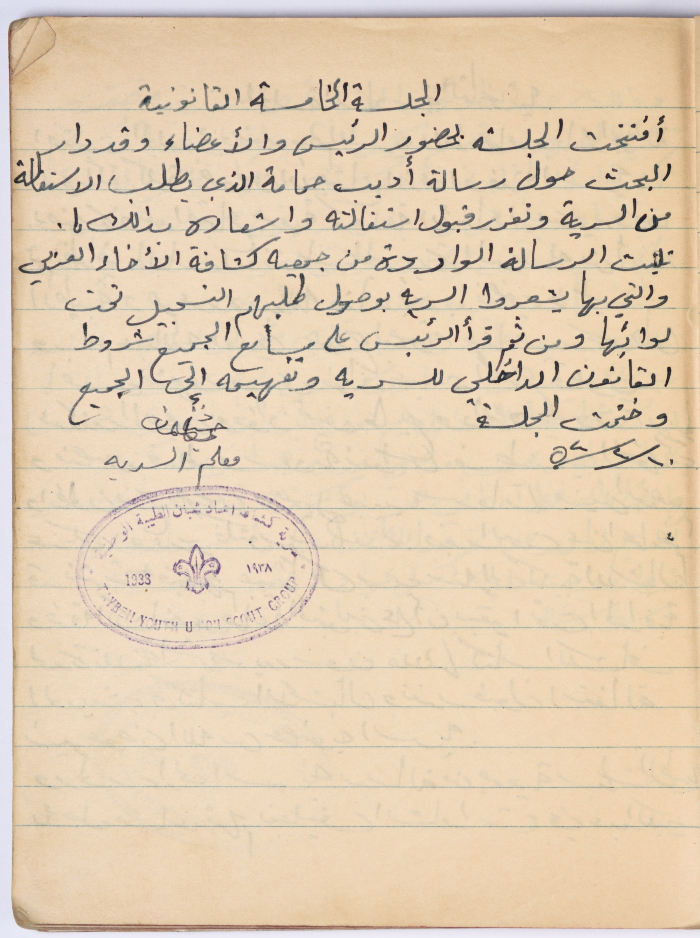 الجلسة الخامسة القانونية
أفتتحت الجلسه بحضور الرئيس والأعضاء وقد دار
البحث حول رسالة أديب حمامة الذي يطلب الاستقالة
من السرية وتقرر قبول استقالته واشعاره بذلك.
تليت الرسالة الواردة من جمعيه كشافة الأخاء العربي
والتي بها يشعروا السريه بوصول طلبهم التسجيل تحت
لوائها ومن ثم قرأ الرئيس على مسامع الجميع شروط
القانون الداخلي للسريه وتفهيمه إلى الجميع
وختمت الجلسة
معلم السريه
سرية كشافة اتحاد شبان الطيبة الوطنية
1938 ١٩٣٨
TAYBEH YOUTH UNION SCOUT GROUP